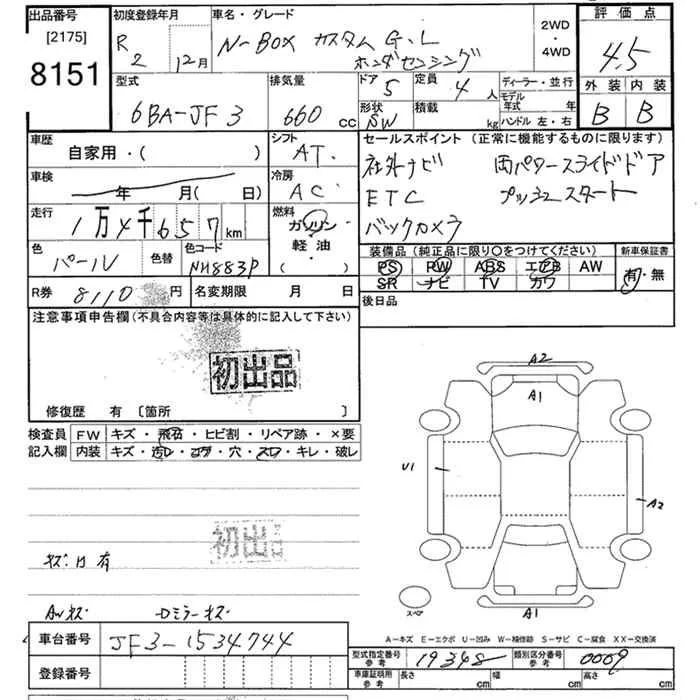 出品番号 初度登録年月 車名・グレード 2WD・4WD 評価点
[2175] 8151
R2 12月
N-BOX カスタム G.L ホンダセンシング
4.5
型式 排気量 ドア 5 定員 4人 ディーラー・並行 外装 内装
6BA-JF3 660cc 形状 SW 積載 kg モデル年式 年 ハンドル 左・右 B B
車歴 シフト セールスポイント (正常に機能するものに限ります)
自家用・( ) AT. 社外ナビ 両パワースライドドア
車検 年 月( 日) 冷房 AC ETC プッシュスタート
走行 1万4千657km 燃料 ガソリン・軽油・( ) バックカメラ
色 パール 色替 色コード NH883P
装備品 (純正品に限り○をつけてください) 新車保証書
PS PW ABS エアB AW 有・無
SR ナビ TV カワ
R券 8110円 名変期限 月 日 後日品
注意事項申告欄(不具合内容等は具体的に記入して下さい)
初出品
修復歴 有 [箇所 ]
検査員記入欄 FW キズ・飛石・ヒビ割・リペア跡・×要
内装 キズ・汚レ・コゲ・穴・スレ・キレ・破レ
初出品
A2
A1
U1
A2
A1
スペア
キズ凹有
AWキズ Dミラーキズ
A−キズ E−エクボ U−凹み W−補修跡 S−サビ C−腐食 XX−交換済
車台番号 JF3-1534744
型式指定番号 参考 19348 類別区分番号 参考 0009
登録番号
車庫証明用 参考 長さ cm 幅 cm 高さ cm